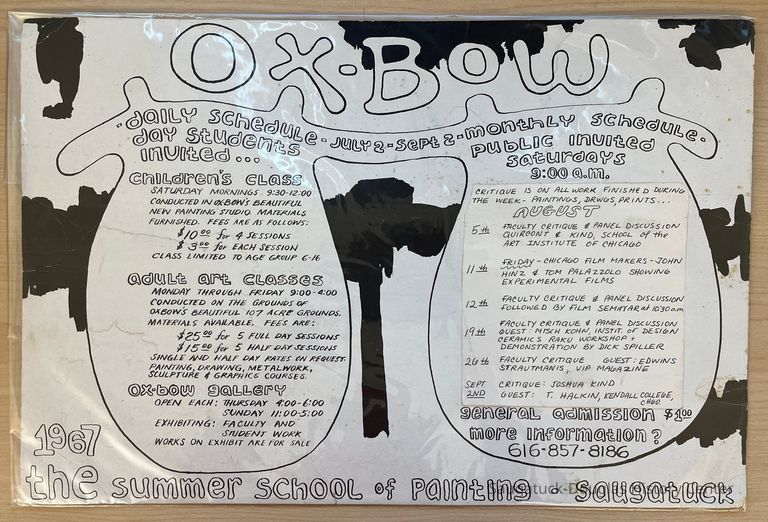 OX-BOW
-daily schedule-July 2-Sept 2-monthly schedule-
day students
invited...
children's class
SATURDAY MORNINGS 9:30-12:00
CONDUCTED IN OXBOW'S BEAUTIFUL
NEW PAINTING STUDIO. MATERIALS
FURNISHED. FEES ARE AS FOLLOWS:
$10.00 for 4 SESSIONS
$3.00 for EACH SESSION
CLASS LIMITED TO AGE GROUP 6-16
adult art classes
MONDAY THROUGH FRIDAY 9:00-4:00
CONDUCTED ON THE GROUNDS OF
OXBOW'S BEAUTIFUL 107 ACRE GROUNDS.
MATERIALS AVAILABLE. FEES ARE:
$25.00 for 5 FULL DAY SESSIONS
$15.00 for 5 HALF DAY SESSIONS
SINGLE AND HALF DAY RATES ON REQUEST.
PAINTING, DRAWING, METALWORK,
SCULPTURE & GRAPHICS COURSES.
OX-BOW gallery
OPEN EACH: THURSDAY 4:00-6:00
SUNDAY 11:00-5:00
EXHIBITING: FACULTY AND
STUDENT WORK
WORKS ON EXHIBIT ARE FOR SALE
public invited
saturdays
9:00 a.m.
CRITIQUE IS ON ALL WORK FINISHED DURING
THE WEEK- PAINTINGS, DRWGS, PRINTS...
AUGUST
5th FACULTY CRITIQUE & PANEL DISCUSSION
QUIRCONT & KIND, SCHOOL of the
ART INSTITUTE OF CHICAGO
11th FRIDAY - CHICAGO FILM MAKERS - JOHN
HINZ & TOM PALAZZOLO SHOWING
EXPERIMENTAL FILMS
12th FACULTY CRITIQUE & PANEL DISCUSSION
FOLLOWED BY FILM SEMINAR at 10:30am
19th FACULTY CRITIQUE & PANEL DISCUSSION
GUEST: MISCH KOHN, INSTIT. of DESIGN
CERAMICS RAKU WORKSHOP &
DEMONSTRATION BY DICK SPILLER
26th FACULTY CRITIQUE GUEST: EDWINS
STRAUTMANIS, VIP MAGAZINE
SEPT 2ND CRITIQUE: JOSHUA KIND
GUEST: T. HALKIN, KENDALL COLLEGE,
CHGO
general admission $1.00
more information?
616-857-8186
1967
the summer school of painting Saugatuck